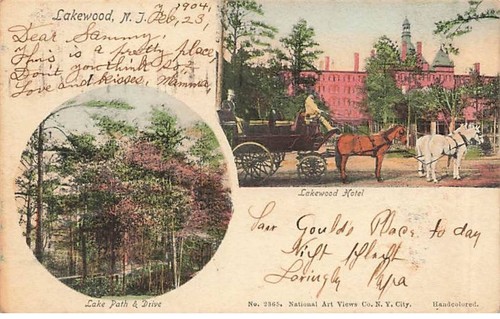 Lakewood, N.J. Feb, 23, 1904,
Dear Sammy,
This is a pretty place,
Don't you think so?
Love and kisses, Mamma,
Lakewood Hotel
Saw Gould's Place to day
Lovingly Papa
Lake Path & Drive
No. 2365. National Art Views Co. N. Y. City. Handcolored.